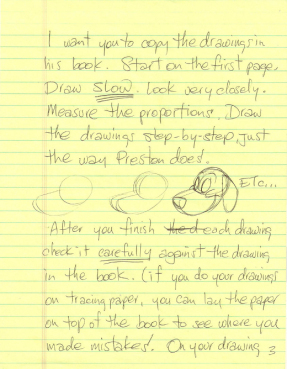 I want you to copy the drawings in
his book. Start on the first page.
Draw slow. Look very closely.
Measure the proportions. Draw
the drawings step-by-step, just
the way Preston does!
ETC...
After you finish the d each drawing
check it carefully against the drawing
in the book. (if you do your drawings
on tracing paper, you can lay the paper
on top of the book to see where you
made mistakes! On your drawing
3